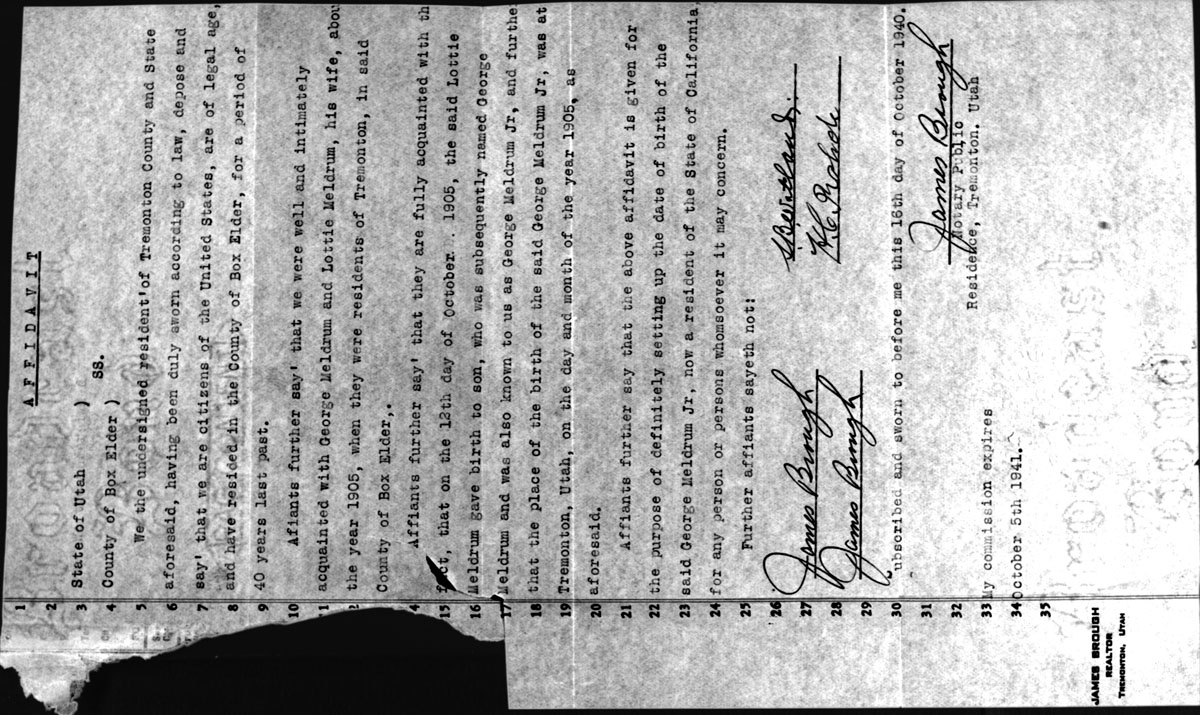 1 A F F I D A V I T
2
3 State of Utah )
4 County of Box Elder ) SS.
5 We the undersigned resident'of Tremonton County and State
6 aforesaid, having been duly sworn according to law, depose and
7 say' that we are citizens of the United States, are of legal age,
8 and have resided in the County of Box Elder, for a period of
9 40 years last past.
10 Afiants further say' that we were well and intimately
1 acquainted with George Meldrum and Lottie Meldrum, his wife, abou
2 the year 1905, when they were residents of Tremonton, in said
County of Box Elder,.
4 Affiants further say' that they are fully acquainted with th
15 fact, that on the 12th day of October.. 1905, the said Lottie
16 Meldrum gave birth to son, who was subsequently named George
17 Meldrum and was also known to us as George Meldrum Jr, and furthe
18 that the place of the birth of the said George Meldrum Jr, was at
19 Tremonton, Utah, on the day and month of the year 1905, as
20 aforesaid.
21 Affiants further say that the above affidavit is given for
22 the purpose of definitely setting up the date of birth of the
23 said George Meldrum Jr, now a resident of the State of California
24 for any person or persons whomsoever it may concern.
25 Further affiants sayeth not:
26
27 James Brough
28 James Brough
29
30 ubscribed and sworn to before me this 16th day of October 1940.
31 James Brough
32 Notary Public
33 My commission expires Residence, Tremonton. Utah
34 October 5th 1941.
35
JAMES BROUGH
REALTOR
TREMONTON, UTAH